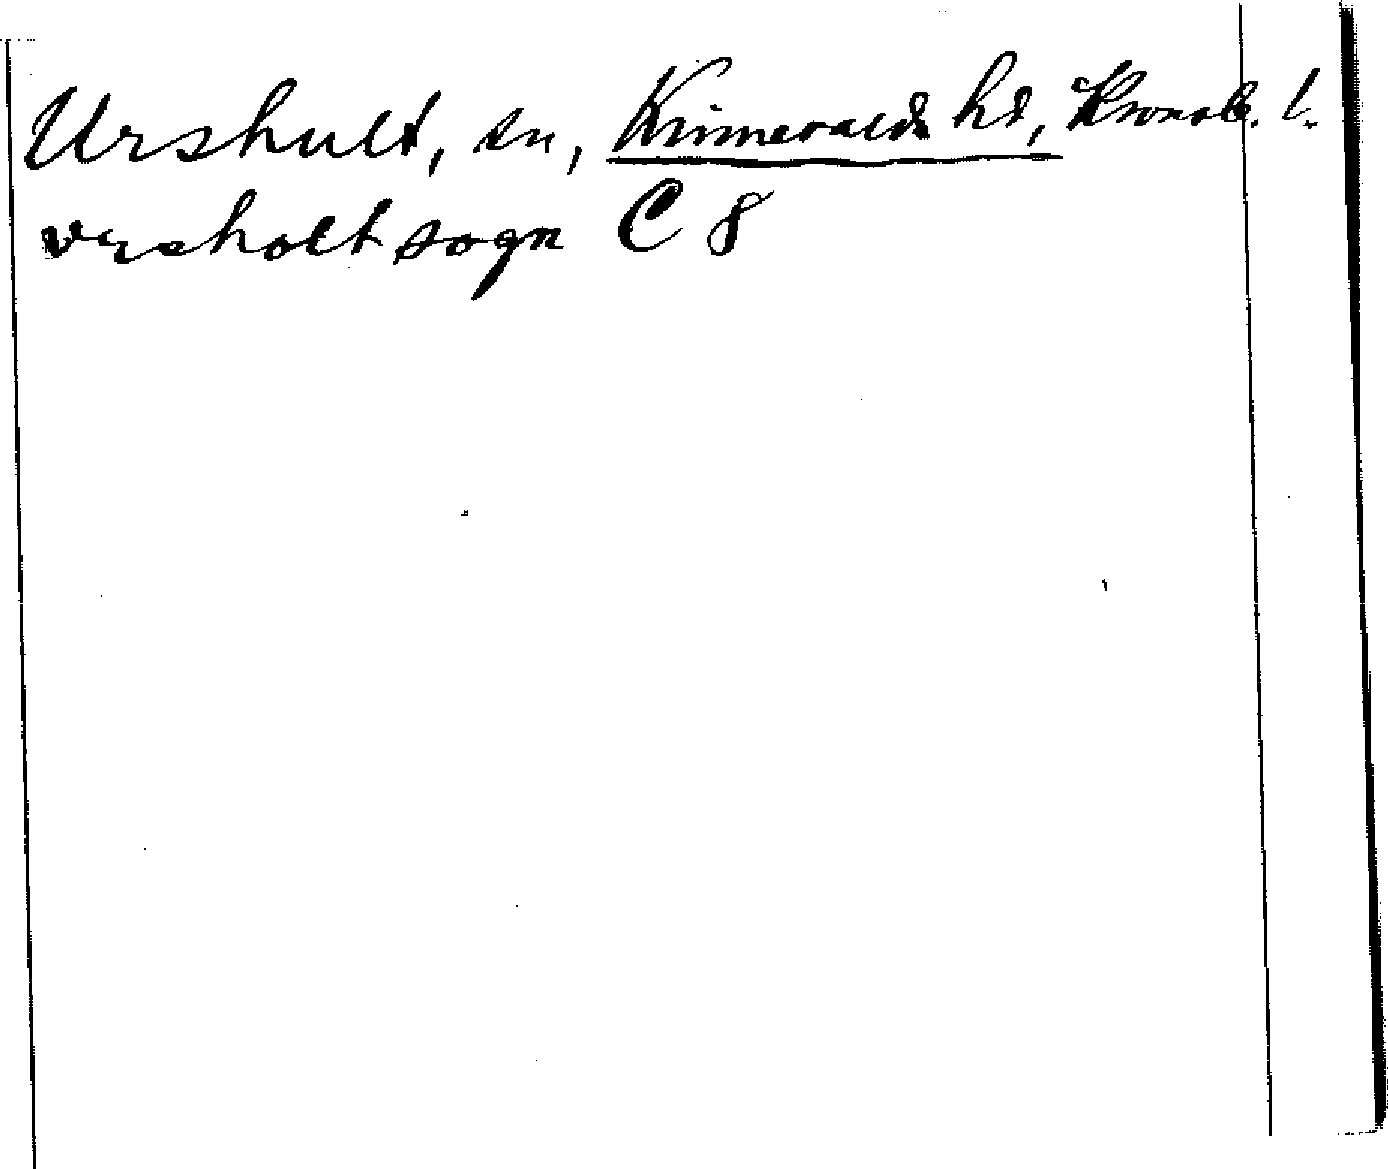 Urshult, sn, Kinnevalds hd, Kronob. l.
vrsholt sogn C 8